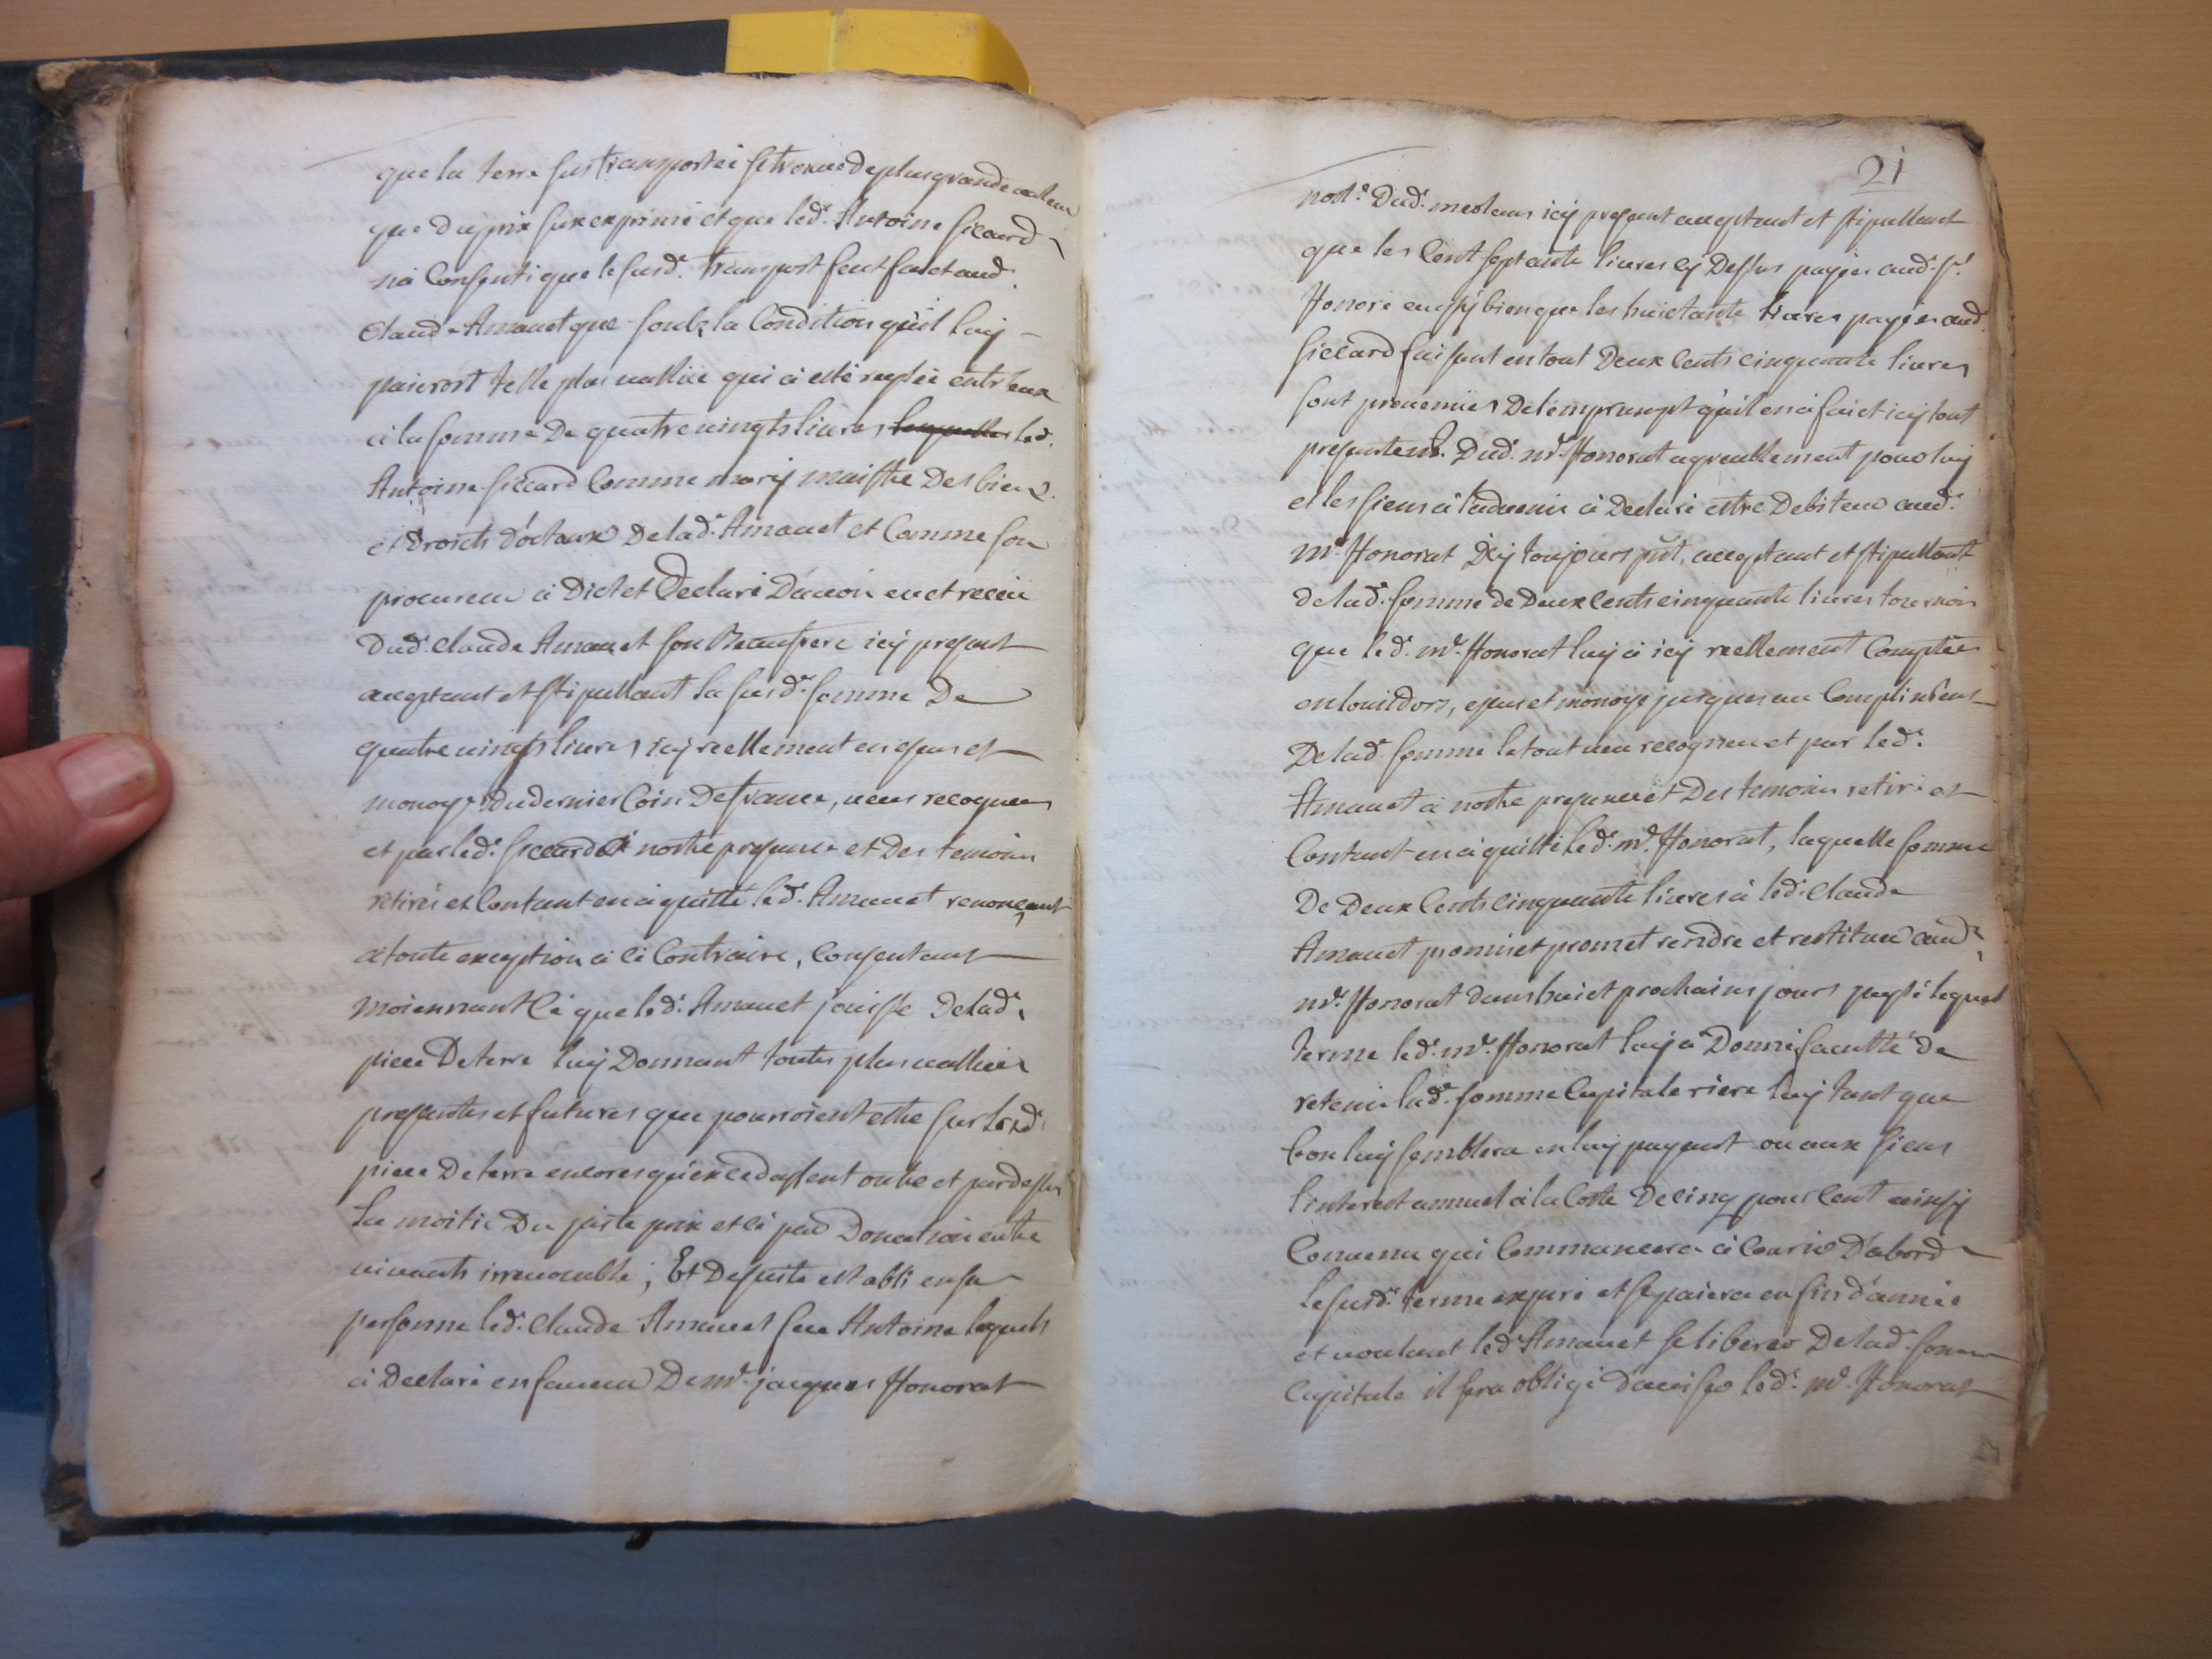 que la terre sus transportéé se treuue de plus grande valleur
que du prix sus exprimé et que led. Antoine Siccard
n'a Consenti que le susd. transport feut faict aud.
Claude Amauet que soubz la Condition qu'il luy
paieroit telle plus vallüe qui a esté reglée entre eux
a la somme De quatre uingts liures led.
Antoine Siccard Comme mary maistre Des biens
et droicts dotaux De lad. Amauet et Comme son
procureur a Dict et Declaré D'auoir eu et receu
Dud. Claude Amauet son Beaufrere icy present
acceptant et stipullant la susd. somme De
quatre uingts liures icy reellement en espus et
monoye du dernier Coin De france, ueus recogneus
et par led. Siccard a nostre presence et Des temoins
retirés et Contant en a quitté led. Amauet renonceant
a toute exception a ce Contraire, Consentant
moiennant Ce que led. Amauet jouisse De lad.
piece De terre luy Donnant toutes plus vallües
presentes et futures que pourroient estre sur lad.
piece De terre encores qu'excedassent outre et par dessus
La moitié Du juste prix et ce par Donation entre
uiuants irreuocable; Et De suite establi en sa
personne led. Claude Amauet feu Antoine lequels
a Declaré en faueur De Mr. jacques Honorat
21
nore. Dud. meolans icy present acceptant et stipullant
que les Cent septante liures cy Dessus payées aud. Sr.
Honoré aussy bien que les huictante liures payées aud.
Siccard faisant en tout Deux Cents cinquante liures
sont prouenües De l'emprunpt qu'il en a faict icy tout
presentem. Dud. Mr. Honorat agreablement pour luy
et les siens a l'aduenir a Declaré estre Debiteur aud.
Mr. Honorat Icy toujours pnt. acceptant et stipullant
de lad. somme de Deux Cents cinquante liures tournois
que led. Mr. Honorat luy a icy reellement Comptées
en louis dors, espus et monoye jusques au Complimens
De lad. somme le tout ueu recogneu et par led.
Amauet a nostre presence et Des temoins retiré et
Contant en a quitté led. Mr. Honorat, laquelle somme
De Deux Cents cinquante liures a led. Claude
Amauet promis et promet rendre et restituer aud.
Mr. Honorat dans huict prochains jours passé lequel
terme led. Mr. Honorat luy a Donné faculté de
retenir lad. somme Capitale riere luy tant que
bon luy semblera en luy payant ou aux siens
l'interest annuel a la Cotte De cinq pour Cent ainsy
Conuenu qui Commancera a Courir D'abord
le susd. terme expiré et se paiera en fin d'année
et uoulant led. Amauet se liberer De lad. somme
Capitale il sera obligé d'auiser led. Mr. Honorat